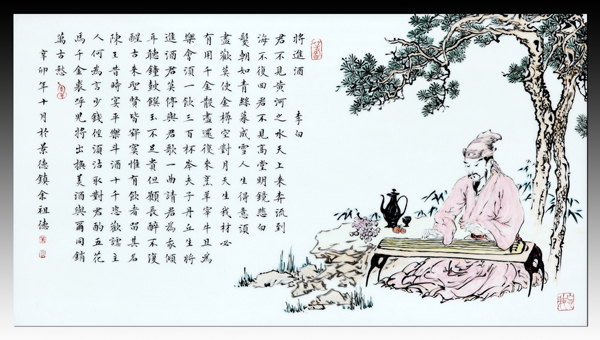 將進酒 李白
君不見黃河之水天上來奔流到
海不復回君不見高堂明鏡悲白
髮朝如青絲暮成雪人生得意須
盡歡莫使金樽空對月天生我材必
有用千金散盡還復來烹羊宰牛且為
樂會須一飲三百杯岑夫子丹丘生將
進酒君莫停與君歌一曲請君為我傾
耳聽鐘鼓饌玉不足貴但願長醉不復
醒古來聖賢皆寂寞惟有飲者留其名
陳王昔時宴平樂斗酒十千恣歡謔主
人何為言少錢徑須沽取對君酌五花
馬千金裘呼兒將出換美酒與爾同銷
萬古愁
辛卯年十月於景德鎮余祖德